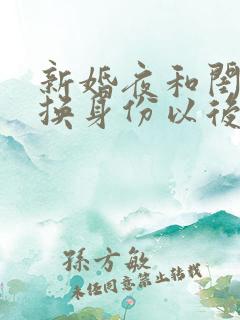 新婚夜和閨
換身份以後
孫方敏
未經同意禁止轉載